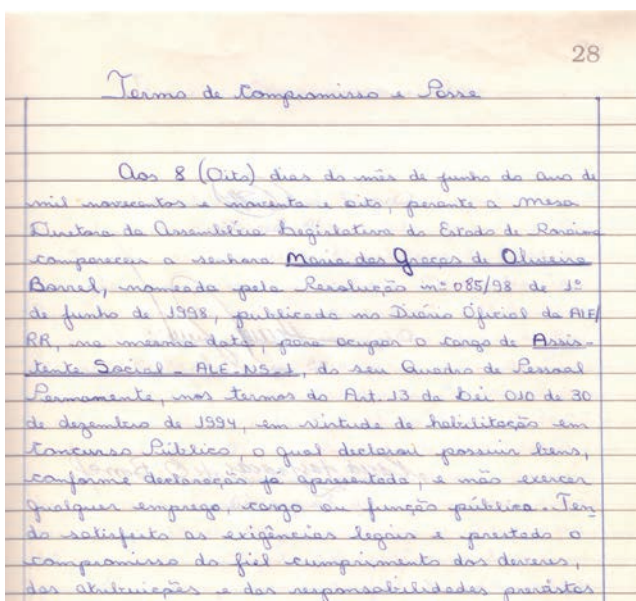 28
Termo de Compromisso e Posse
Aos 8 (Oito) dias do mês de junho do ano de
mil novecentos e noventa e oito, perante a Mesa
Diretora da Assembléia Legislativa do Estado de Roraima
compareceu a senhora Maria das Graças de Oliveira
Barrel, nomeada pela Resolução nº 085/98 de 1º
de junho de 1998, publicada no Diário Oficial da ALE/
RR, na mesma data, para ocupar o cargo de Assis-
tente Social - ALE-NS-1, do seu Quadro de Pessoal
Permanente, nos termos do Art. 13 da Lei 010 de 30
de dezembro de 1994, em virtude de habilitação em
Concurso Público, o qual declarou possuir bens,
conforme declaração já apresentada, e não exercer
qualquer emprego, cargo ou função pública. Ten-
do satisfeito as exigências legais e prestado o
compromisso do fiel cumprimento dos deveres,
das atribuições e das responsabilidades previstas